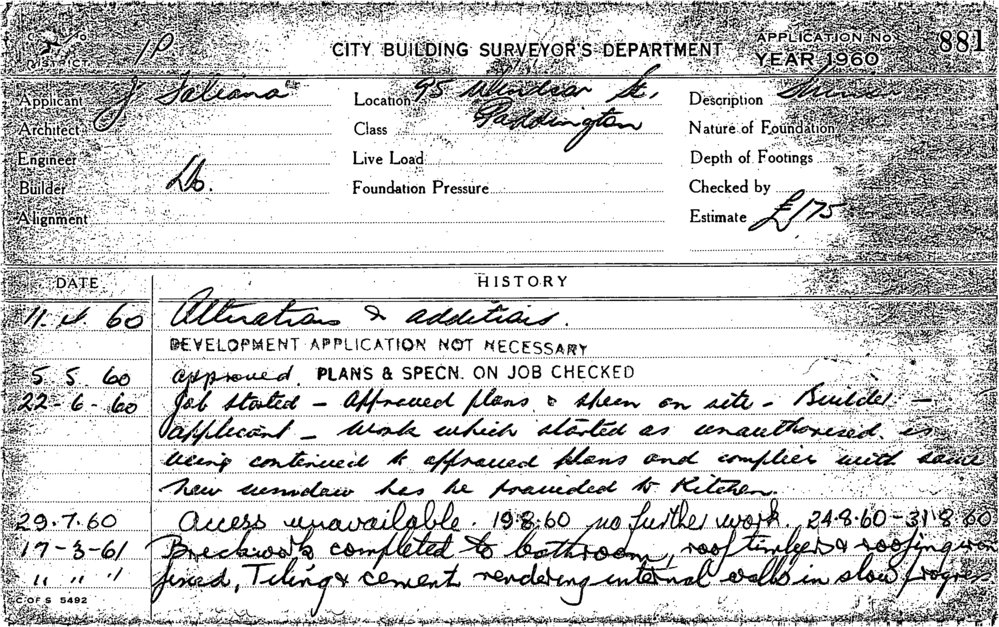 DISTRICT
CITY BUILDING SURVEYOR'S DEPARTMENT
APPLICATION No. 881
YEAR 1960
Applicant J
Location 95 Windsor St.
Description
Architect
Class Paddington
Nature of Foundation
Engineer
Live Load
Depth of Footings
Builder Do.
Foundation Pressure
Checked by
Alignment
Estimate £175
DATE HISTORY
11. 4. 60 Alterations & additions.
DEVELOPMENT APPLICATION NOT NECESSARY
5. 5. 60 approved. PLANS & SPECN. ON JOB CHECKED
22-6-60 Job started - Approved plans & specn on site - Builder -
applicant - Work which started as unauthorised is
being continued to approved plans and complies with same
New window has be provided to Kitchen.
29.7.60 Access unavailable. 19.8.60 no further work. 24.8.60 - 31.8.60
17-3-61 Brickwork completed to bathroom, roof timbers & roofing iron
" " " fixed, Tiling & cement rendering internal walls in slow progress
C OF S 5492